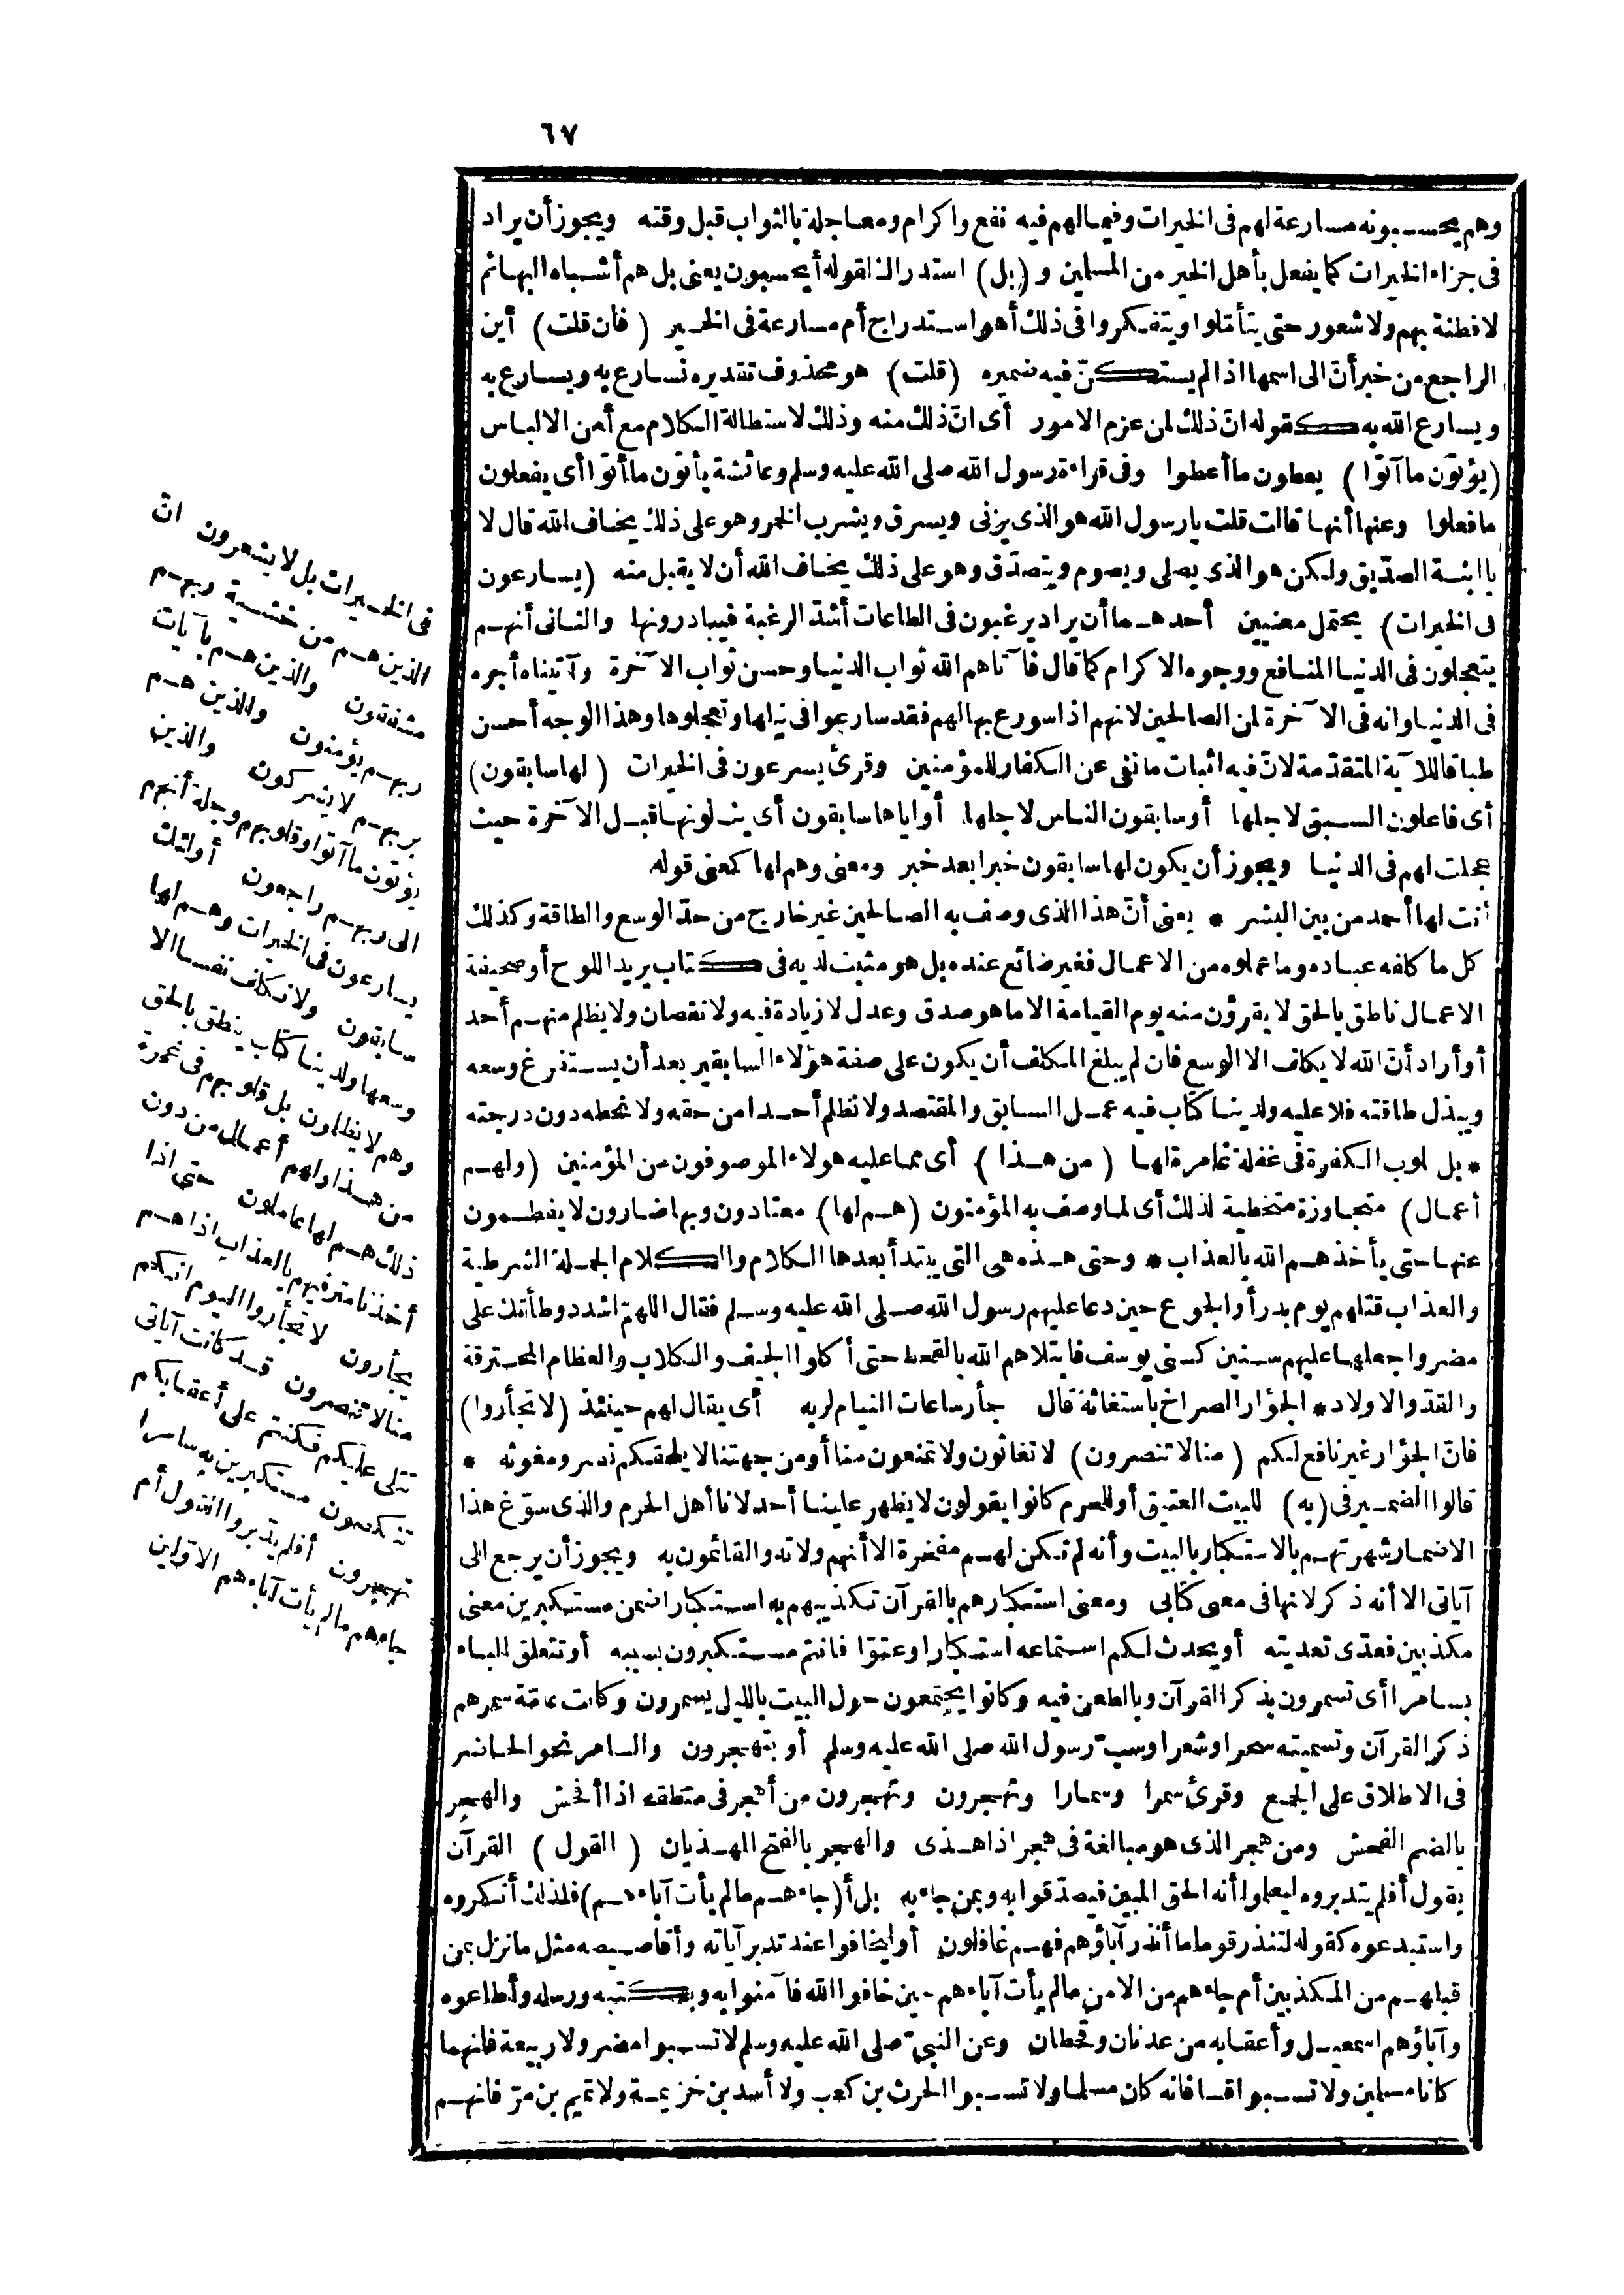 ٦٧
وهم يحسبونه مسارعة لهم فى الخيرات وفيما لهم فيه نفع واكرام ومعاجلة بالثواب قبل وقته ويجوز أن يراد
فى جزاء الخيرات كما يفعل بأهل الخير من المسلمين و (بل) استدراك لقوله أيحسبون يعنى بل هم أشباه البهائم
لا فطنة بهم ولا شعور حتى يتأملوا ويتفكروا فى ذلك أهو استدراج أم مسارعة فى الخير (فان قلت) أين
الراجع من خبر أنّ الى اسمها اذا لم يستكنّ فيه ضميره (قلت) هو محذوف تقديره نسارع به ويسارع به
ويسارع الله به كقوله انّ ذلك لمن عزم الامور أى انّ ذلك منه وذلك لاستطالة الكلام مع أمن الالباس
(يؤتون ما آتوا) يعطون ما أعطوا وفى قراءة رسول الله صلى الله عليه وسلم وعائشة يأتون ما أتوا أى يفعلون
ما فعلوا وعنها أنها قالت قلت يا رسول الله هو الذى يزنى ويسرق ويشرب الخمر وهو على ذلك يخاف الله قال لا
يا ابنة الصدّيق ولكن هو الذى يصلى ويصوم ويتصدّق وهو على ذلك يخاف الله أن لا يقبل منه (يسارعون
فى الخيرات) يحتمل معنيين أحدهما أن يراد يرغبون فى الطاعات أشدّ الرغبة فيبادرونها والثانى أنهم
يتعجلون فى الدنيا المنافع ووجوه الاكرام كما قال فآتاهم الله ثواب الدنيا وحسن ثواب الآخرة وآتيناه أجره
فى الدنيا وانه فى الآخرة لمن الصالحين لانهم اذا سورع بها لهم فقد سارعوا فى نيلها وتعجلوها وهذا الوجه أحسن
طباقا للآية المتقدّمة لانّ فيه اثبات ما نفى عن الكفار للمؤمنين وقرئ يسرعون فى الخيرات (لها سابقون)
أى فاعلون السبق لاجلها أو سابقون الناس لاجلها أو اياها سابقون أى ينالونها قبل الآخرة حيث
عجلت لهم فى الدنيا ويجوز أن يكون لها سابقون خبرا بعد خبر ومعنى وهم لها كمعنى قوله
أنت لها أحمد من بين البشر * يعنى أنّ هذا الذى وصف به الصالحين غير خارج من حدّ الوسع والطاقة وكذلك
كل ما كلفه عباده وما عملوه من الاعمال فغير ضائع عنده بل هو مثبت لديه فى كتاب يريد اللوح أو صحيفة
الاعمال ناطق بالحق لا يقرؤن منه يوم القيامة الا ما هو صدق وعدل لا زيادة فيه ولا نقصان ولا يظلم منهم أحد
أو أراد أنّ الله لا يكلف الا الوسع فان لم يبلغ المكلف أن يكون على صفة هؤلاء السابقين بعد أن يستفرغ وسعه
ويبذل طاقته فلا عليه ولدينا كتاب فيه عمل السابق والمقتصد ولا نظلم أحدا من حقه ولا نحطه دون درجته
* بل قلوب الكفرة فى غفلة غامرة لها (من هذا) أى مما عليه هولاء الموصوفون من المؤمنين (ولهم
أعمال) متجاوزة متخطية لذلك أى لما وصف به المؤمنون (هم لها) معتادون وبها ضارون لا يفطمون
عنها حتى يأخذهم الله بالعذاب * وحتى هذه هى التى يبتدأ بعدها الكلام والكلام الجملة الشرطية
والعذاب قتلهم يوم بدر أو الجوع حين دعا عليهم رسول الله صلى الله عليه وسلم فقال اللهمّ اشدد وطأتك على
مضر واجعلها عليهم سنين كسنى يوسف فابتلاهم الله بالقحط حتى أكلوا الجيف والكلاب والعظام المحترقة
والقدّ والاولاد * الجؤار الصراخ باستغاثة قال جأر ساعات النيام لربه أى يقال لهم حينئذ (لا تجأروا)
فانّ الجؤار غير نافع لكم (منا لا تنصرون) لا تغاثون ولا تمنعون منا أو من جهتنا لا يلحقكم نصر ومغوثة *
قالوا الضمير فى (به) للبيت العتيق أو للحرم كانوا يقولون لا يظهر علينا أحد لانا أهل الحرم والذى سوّغ هذا
الاضمار شهرتهم بالاستكبار بالبيت وأنه لم تكن لهم مفخرة الا أنهم ولاته والقائمون به ويجوز أن يرجع الى
آياتى الا أنه ذكر لانها فى معنى كتابى ومعنى استكبارهم بالقرآن تكذيبهم به استكبارا ضمن مستكبرين معنى
مكذبين فعدّى تعديته أو يحدث لكم استماعه استكبارا وعتوّا فانتم مستكبرون بسببه أو تتعلق الباء
بسامرا أى تسمرون بذكر القرآن وبالطعن فيه وكانوا يجتمعون حول البيت بالليل يسمرون وكانت عامّة سمرهم
ذكر القرآن وتسميته سحرا وشعرا وسبّ رسول الله صلى الله عليه وسلم أو بتهجرون والسامر نحو الحاضر
فى الاطلاق على الجمع وقرئ سمرا وسمارا وتهجرون وتهجرون من أهجر فى منطقه اذا أفحش والهجر
بالضم الفحش ومن هجر الذى هو مبالغة فى هجر اذا هذى والهجر بالفتح الهذيان (القول) القرآن
يقول أفلم يتدبروه ليعلموا أنه الحق المبين فيصدّقوا به وبمن جاء به بل أ(جاءهم ما لم يأت آباءهم) فلذلك أنكروه
واستبدعوه كقوله لتنذر قوما ما أنذر آباؤهم فهم غافلون أو ليخافوا عند تدبر آياته وأقاصيصه مثل ما نزل بمن
قبلهم من المكذبين أم جاءهم من الامن ما لم يأت آباءهم حين خافوا الله فآمنوا به وبكتبه ورسله وأطاعوه
وآباؤهم اسمعيل وأعقابه من عدنان وقحطان وعن النبىّ صلى الله عليه وسلم لا تسبوا مضر ولا ربيعة فانهما
كانا مسلمين ولا تسبوا قسا فانه كان مسلما ولا تسبوا الحرث بن كعب ولا أسد بن خزيمة ولا تميم بن مرّ فانهم
فى الخيرات بل لا يشعرون انّ
الذين هم من خشية ربهم
مشفقون والذين هم بآيات
ربهم يؤمنون والذين هم
بربهم لا يشركون والذين
يؤتون ما آتوا وقلوبهم وجلة أنهم
الى ربهم راجعون أولئك
يسارعون فى الخيرات وهم لها
سابقون ولا نكلف نفسا الا
وسعها ولدينا كتاب ينطق بالحق
وهم لا يظلمون بل قلوبهم فى غمرة
من هذا ولهم أعمال من دون
ذلك هم لها عاملون حتى اذا
أخذنا مترفيهم بالعذاب اذا هم
يجأرون لا تجأروا اليوم انكم
منا لا تنصرون قد كانت آياتى
تتلى عليكم فكنتم على أعقابكم
تنكصون مستكبرين به سامرا
تهجرون أفلم يدّبروا القول أم
جاءهم ما لم يأت آباءهم الاوّلين